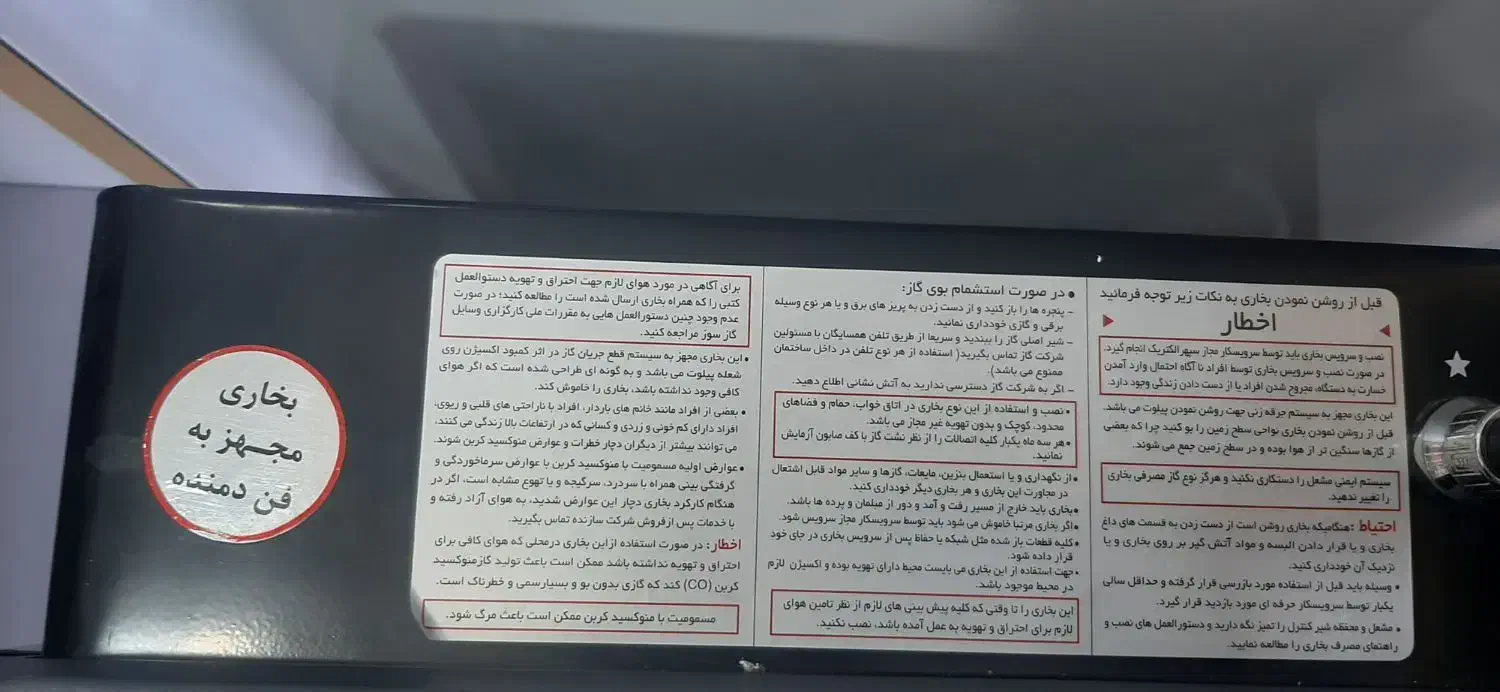 قبل از روشن نمودن بخاری به نکات زیر توجه فرمائید
اخطار
نصب و سرویس بخاری باید توسط سرویسکار مجاز سپهرالکتریک انجام گیرد.
در صورت نصب و سرویس بخاری توسط افراد نا آگاه احتمال وارد آمدن
خسارت به دستگاه، مجروح شدن افراد یا از دست دادن زندگی وجود دارد.
این بخاری مجهز به سیستم جرقه زنی جهت روشن نمودن پیلوت می باشد.
قبل از روشن نمودن بخاری نواحی سطح زمین را بو کنید چرا که بعضی
از گازها سنگین تر از هوا بوده و در سطح زمین جمع می شوند.
سیستم ایمنی مشعل را دستکاری نکنید و هرگز نوع گاز مصرفی بخاری
را تغییر ندهید.
احتیاط :هنگامیکه بخاری روشن است از دست زدن به قسمت های داغ
بخاری و یا قرار دادن البسه و مواد آتش گیر بر روی بخاری و یا
نزدیک آن خودداری کنید.
• وسیله باید قبل از استفاده مورد بازرسی قرار گرفته و حداقل سالی
یکبار توسط سرویسکار حرفه ای مورد بازدید قرار گیرد.
• مشعل و محفظه شیر کنترل را تمیز نگه دارید و دستورالعمل های نصب و
راهنمای مصرف بخاری را مطالعه نمایید.
• در صورت استشمام بوی گاز:
- پنجره ها را باز کنید و از دست زدن به پریز های برق و یا هر نوع وسیله
برقی و گازی خودداری نمائید.
- شیر اصلی گاز را ببندید و سریعا از طریق تلفن همسایگان با مسئولین
شرکت گاز تماس بگیرید( استفاده از هر نوع تلفن در داخل ساختمان
ممنوع می باشد).
- اگر به شرکت گاز دسترسی ندارید به آتش نشانی اطلاع دهید.
• نصب و استفاده از این نوع بخاری در اتاق خواب، حمام و فضاهای
محدود، کوچک و بدون تهویه غیر مجاز می باشد.
• هر سه ماه یکبار کلیه اتصالات را از نظر نشت گاز با کف صابون آزمایش
نمائید.
• از نگهداری و یا استعمال بنزین، مایعات، گازها و سایر مواد قابل اشتعال
در مجاورت این بخاری و هر بخاری دیگر خودداری کنید.
• بخاری باید خارج از مسیر رفت و آمد و دور از مبلمان و پرده ها باشد.
• اگر بخاری مرتبا خاموش می شود باید توسط سرویسکار مجاز سرویس شود.
• کلیه قطعات باز شده مثل شبکه یا حفاظ پس از سرویس بخاری در جای خود
قرار داده شود.
• جهت استفاده از این بخاری می بایست محیط دارای تهویه بوده و اکسیژن لازم
در محیط موجود باشد.
این بخاری را تا وقتی که کلیه پیش بینی های لازم از نظر تامین هوای
لازم برای احتراق و تهویه به عمل آمده باشد، نصب نکنید.
برای آگاهی در مورد هوای لازم جهت احتراق و تهویه دستوالعمل
کتبی را که همراه بخاری ارسال شده است را مطالعه کنید؛ در صورت
عدم وجود چنین دستورالعمل هایی به مقررات ملی کارگزاری وسایل
گاز سوز مراجعه کنید.
• این بخاری مجهز به سیستم قطع جریان گاز در اثر کمبود اکسیژن روی
شعله پیلوت می باشد و به گونه ای طراحی شده است که اگر هوای
کافی وجود نداشته باشد، بخاری را خاموش کند.
• بعضی از افراد مانند خانم های باردار، افراد با ناراحتی های قلبی و ریوی،
افراد دارای کم خونی و زردی و کسانی که در ارتفاعات بالا زندگی می کنند،
می توانند بیشتر از دیگران دچار خطرات و عوارض منوکسید کربن شوند.
• عوارض اولیه مسمومیت با منوکسید کربن با عوارض سرماخوردگی و
گرفتگی بینی همراه با سردرد، سرگیجه و یا تهوع مشابه است، اگر در
هنگام کارکرد بخاری دچار این عوارض شدید، به هوای آزاد رفته و
با خدمات پس ازفروش شرکت سازنده تماس بگیرید.
اخطار: در صورت استفاده ازاین بخاری درمحلی که هوای کافی برای
احتراق و تهویه نداشته باشد ممکن است باعث تولید گازمنوکسید
کربن (CO) کند که گازی بدون بو و بسیارسمی و خطرناک است.
مسمومیت با منوکسید کربن ممکن است باعث مرگ شود.
بخاری
مجهز به
فن دمنده